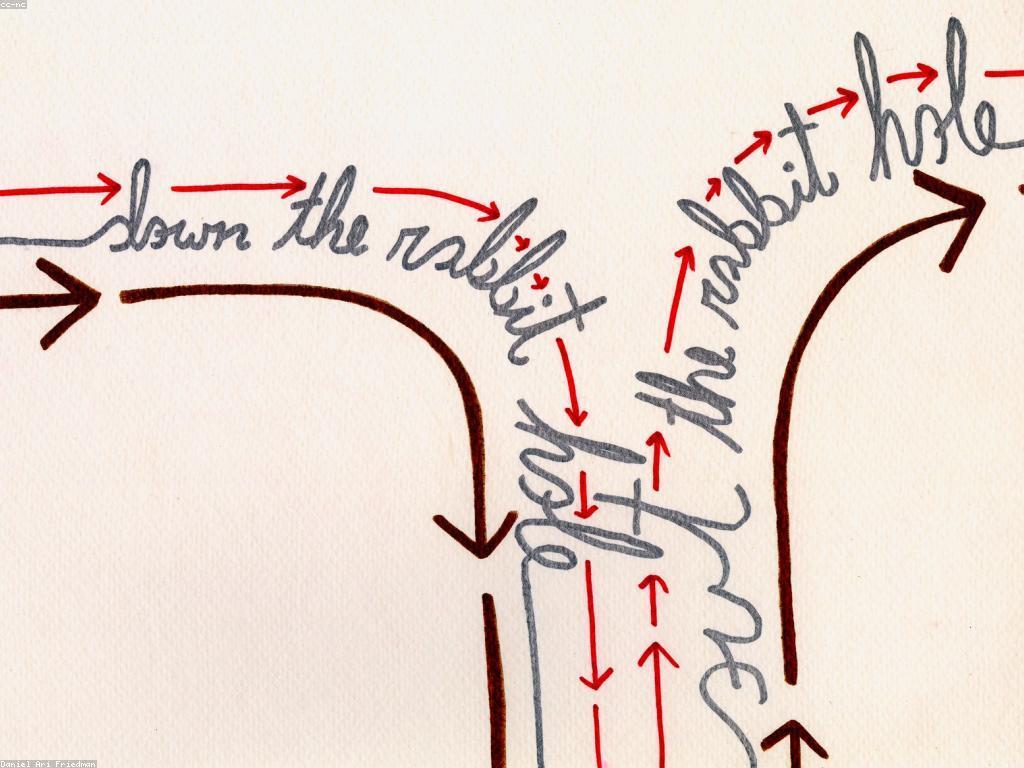 down the rabbit hole
the rabbit hole
cc-nc
Daniel Ari Friedman